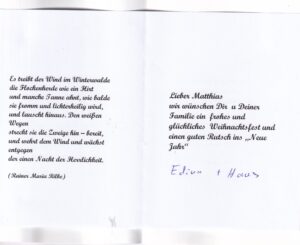 Es treibt der Wind im Winterwalde
die Flockenherde wie ein Hirt
und manche Tanne ahnt, wie balde
sie fromm und lichterheilig wird,
und lauscht hinaus. Den weißen
Wegen
streckt sie die Zweige hin – bereit,
und wehrt dem Wind und wächst
entgegen
der einen Nacht der Herrlichkeit.
(Rainer Maria Rilke)
Lieber Matthias
wir wünschen Dir u Deiner
Familie ein frohes und
glückliches Weihnachtsfest und
einen guten Rutsch ins „Neue
Jahr“
+ Hans